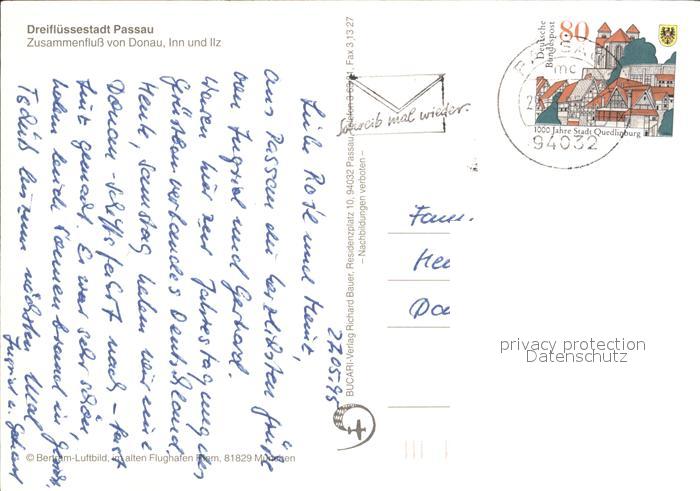 Dreiflüssestadt Passau
Zusammenfluß von Donau, Inn und Ilz
27.05.95
Liebe Rose und Heinz,
aus Passau die herzlichsten Grüße
von Ingrid und Gerhard.
Waren hier zur Jahrestagung des
verbandes Deutschland.
Heute, Samstag haben wir eine
Donau-Schiffsfahrt nach
gemacht. Es war sehr schön,
haben leicht Sonnenbrand im Gesicht.
Tschüß bis zum nächsten Mal
Ingrid u. Gerhard
© Bertram-Luftbild, im alten Flughafen Riem, 81829 München
BUCARI-Verlag Richard Bauer, Residenzplatz 10, 94032 Passau, Fax 3 13 27
– Nachbildungen verboten –
Schreib mal wieder.
Deutsche
Bundespost
80
1000 Jahre Stadt Quedlinburg
PASSAU
mc
94032
Fam.
privacy protection
Datenschutz